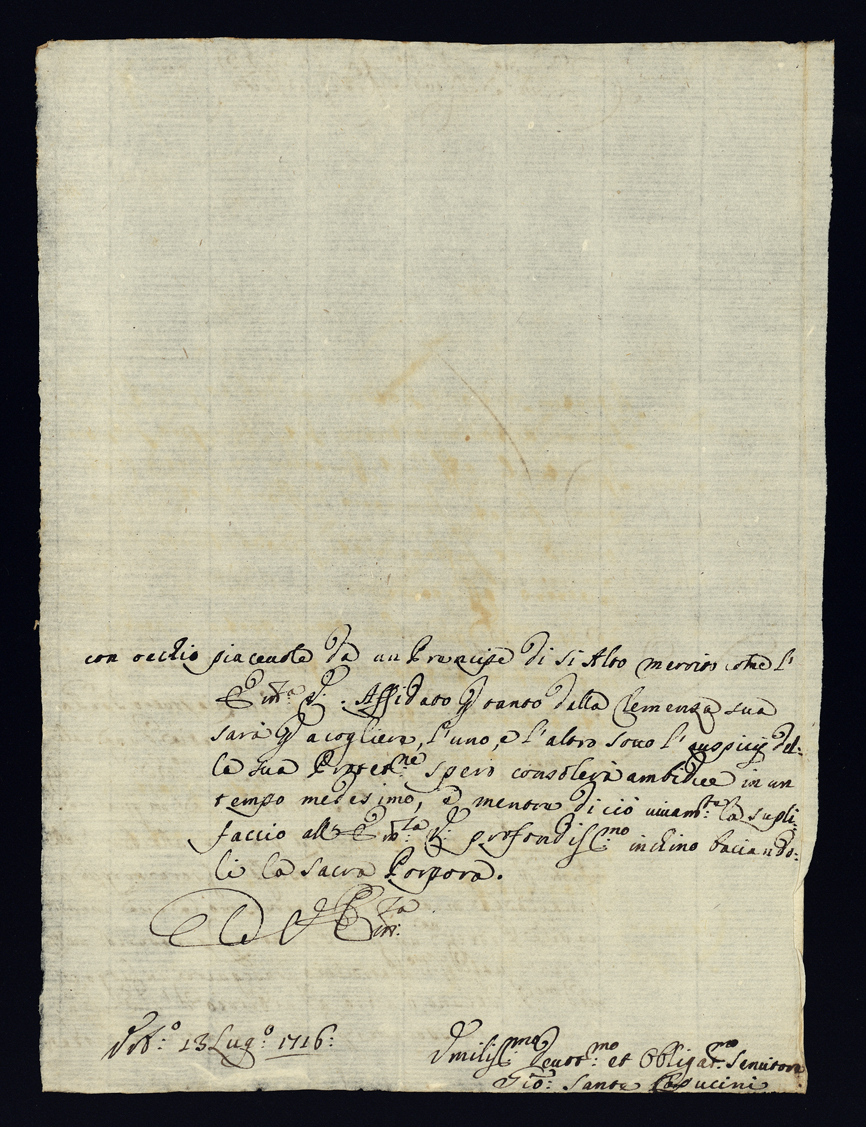 con occhio piacevole da un Prencipe di si Alto merito come l'
Em:za V:. Affidato p tanto dalla Clemenza sua
sarà p acogliere, l'uno, e l'altro sotto l'auspicij del:
la sua Protet:ne spero consolerà ambidue in un
tempo medesimo, e mentre di ciò vivam:te la supli:
faccio all' Em:za V: profondiss:mo inchino baciando:
li la sacra Porpora.
D V Em:za
Urb:o 13 Lug:o 1716:
Umiliss:mo Devot:mo et Obligat:mo Servitore
Gio: Santi Capucini